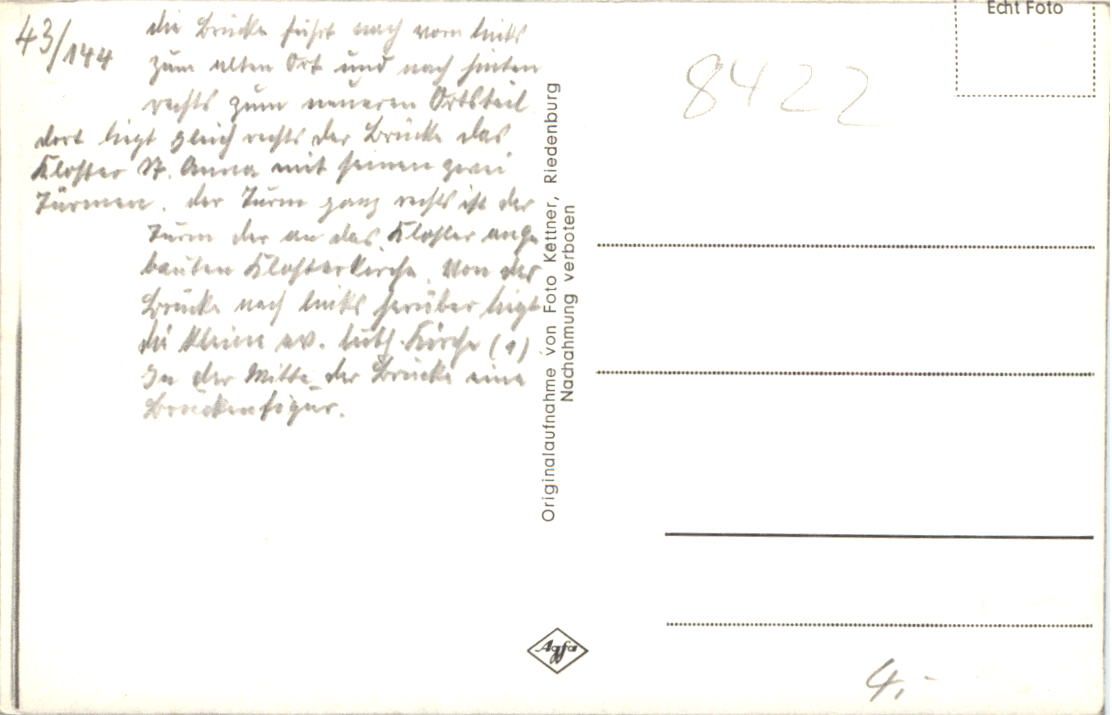 43/144
die Brücke führt nach vorn links
zum alten Ort und nach hinten
rechts zum neueren Ortsteil
dort liegt gleich rechts der Brücke das
Kloster St. Anna mit seinen zwei
Türmen. der Turm ganz rechts ist der
Turm der an das Kloster ange
bauten Klosterkirche. Von der
Brücke nach links herüber liegt
die kleine ev. luth. Kirche (1)
In der Mitte der Brücke eine
Brückenfigur.
Originalaufnahme von Foto Kettner, Riedenburg
Nachahmung verboten
Agfa
Echt Foto
8422
4,-